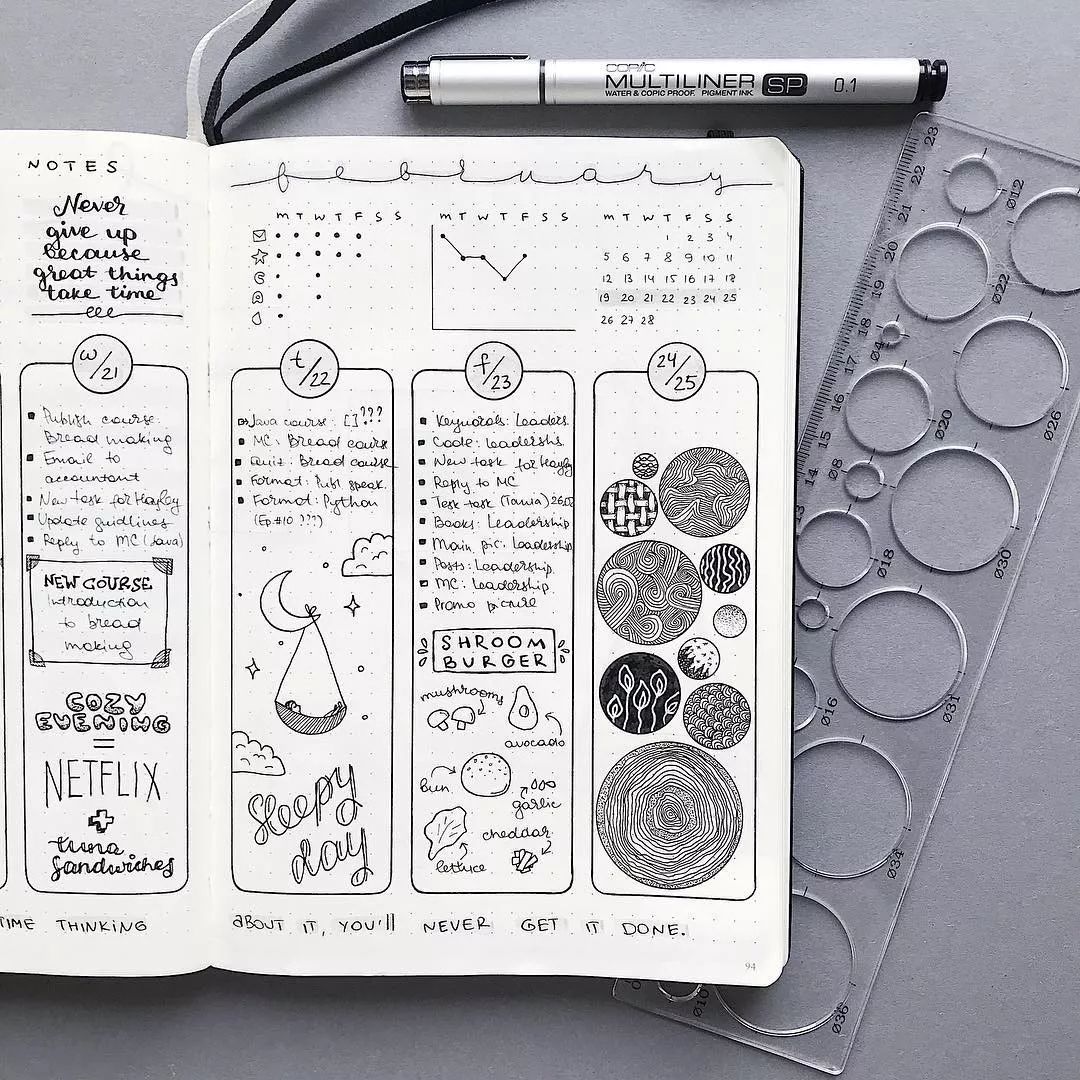 COPIC
MULTILINER SP 0.1
WATER & COPIC PROOF. PIGMENT INK.
NOTES
Never
give up
because
great things
take time
february
M T W T F S S
M T W T F S S
M T W T F S S
1 2 3 4
5 6 7 8 9 10 11
12 13 14 15 16 17 18
19 20 21 22 23 24 25
26 27 28
W/21
Publish course:
Bread making
Email to
accountant
New task for Hayley
Update guidlines
Reply to MC (Java)
NEW COURSE
Introduction
to bread
making
COZY
EVENING
=
NETFLIX
+
tuna
sandwiches
t/22
Java course: [] ???
MC: Bread course
Quiz: Bread course
Format: Publ speak.
Format: Python
(Ep.#10 ???)
Sleepy
day
f/23
Keywords: Leaders.
Code: Leadershs.
New task for Hayley
Reply to MC
Test task (Tania)
Books: Leadership
Main pic: Leadership
Posts: Leadership
MC: Leadership
Promo picture
SHROOM
BURGER
mushrooms
avocado
bun
garlic
cheddar
lettuce
24/25
TIME THINKING ABOUT IT, YOU'll NEVER GET IT DONE.
94
23
22
21
20
19
18
17
16
15
14
13
Ø12
Ø22
Ø4
Ø26
Ø20
Ø8
Ø30
Ø18
Ø31
Ø16
Ø34
Ø10
Ø36
0